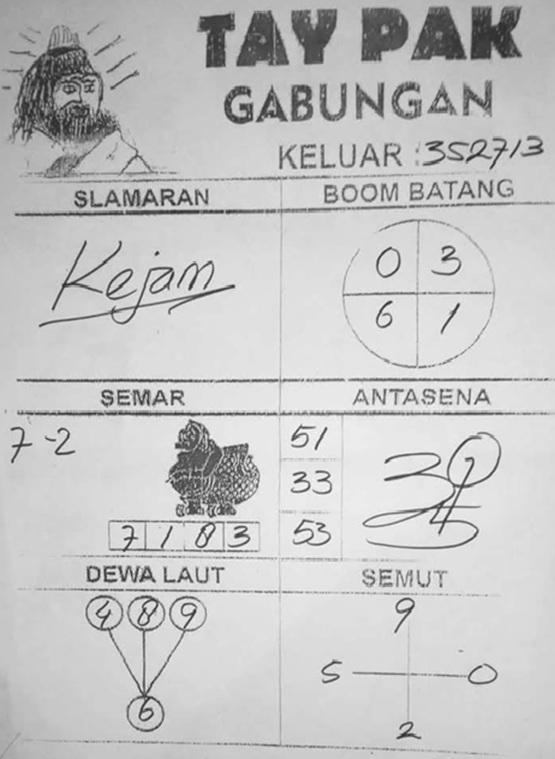 TAY PAK
GABUNGAN
KELUAR : 352713
SLAMARAN
BOOM BATANG
Kejam
0 3
6 1
SEMAR
ANTASENA
7-2
51
33
53
7 1 8 3
DEWA LAUT
SEMUT
4 8 9
6
9
5 0
2